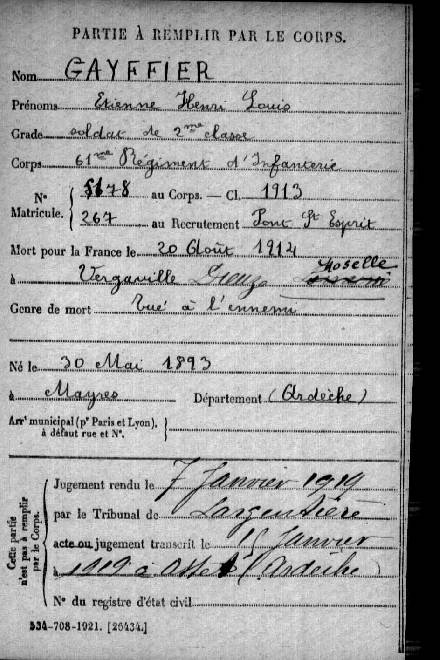 PARTIE À REMPLIR PAR LE CORPS.
Nom GAYFFIER
Prénoms Etienne Henri Louis
Grade soldat de 2me classe
Corps 61me Régiment d'Infanterie
N° Matricule. { 5178 au Corps. — Cl. 1913
267 au Recrutement Pont St Esprit
Mort pour la France le 20 Août 1914
à Vergaville Moselle
Genre de mort Tué à l'ennemi
Né le 30 Mai 1893
à Mayres Département (Ardèche)
Arrt municipal (pr Paris et Lyon), à défaut rue et N°. }
Cette partie n'est pas à remplir par le Corps.
Jugement rendu le 7 Janvier 1919
par le Tribunal de Largentière
acte ou jugement transcrit le Janvier
à 1919 à (Ardèche)
N° du registre d'état civil
534-708-1921. [26434.]